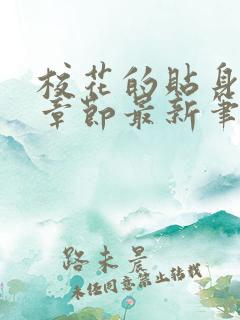 校花的貼身
章節最新筆
路未晨
未经同意禁止转载